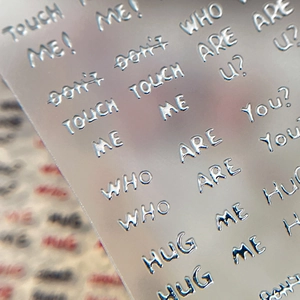 TOUCH ME! WHO ARE
ME! DON'T ARE U?
DON'T TOUCH U?
TOUCH ME You?
ME ARE You?
WHO ARE
WHO ME HUG
HUG ME
HUG